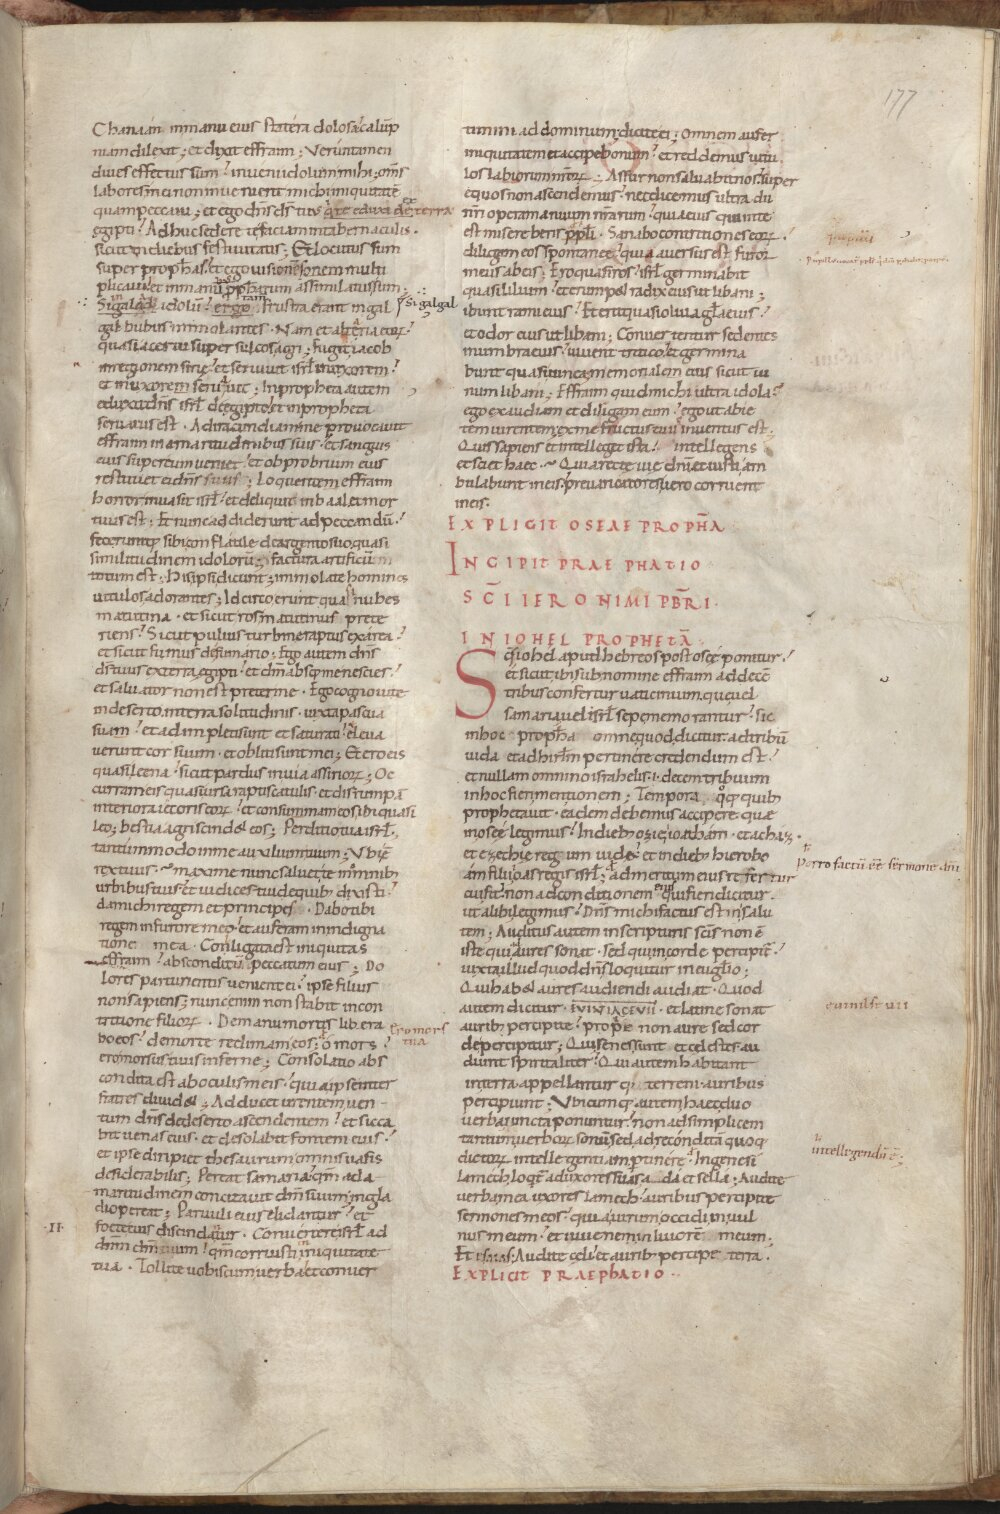 177
Chanaan in manu eius statera dolosa calūp
niam dilexit; et dixit effraim; Veruntamen
diues effectus sum inueni idolum mihi; om̄s
labores mei non inuenerunt michi iniquitatē
quam peccaui; et ego dn̄s ds̄ tuus q̄ te eduxi de terra
egipti; Adhuc sedere te faciam in tabernaculis
sicut in diebus festiuitatis; Et locutus sum
super prophetas et ego uisionē
plicaui et in manu pph̄arum assimilatus sum
Si galaad idolū ergo frustra erant in gal
gal bubus immolantes. Nam et altaria eorꝝ
quasi acerui super sulcos agri; fugit iacob
in regionem sirie et seruiuit isrl̄ in uxorem
et in uxorem seruauit; In propheta autem
eduxit dn̄s isrl̄ de egipto et in propheta
seruatus est. Ad iracundiam me prouocauit
effraim in amaritudinibus suis et sanguis
eius super eum ueniet et obprobrium eius
restituet ei dn̄s suus; Loquente effraim
horror inuasit isrl̄ et deliquit in baal et mor
tuus est; Et nunc addiderunt ad peccandū
feceruntq; sibi conflatile de argento suo quasi
similitudinem idolorū factura artificum
totum est; his ipsi dicunt; immolate homines
uitulos adorantes; Idcirco erunt quasi nubes
matutina et sicut ros matutinus prete
riens; Sicut puluis turbine raptus ex area
et sicut fumus de fumario; Ego autem dn̄s
ds̄ tuus ex terra egipti et dm̄ absq; me nescies
et saluator non est preter me. Ego cognoui te
in deserto in terra solitudinis iuxta pascua
sua et adimpleti sunt et saturati eleua
uerunt cor suum et obliti sunt mei; Et ero eis
quasi leena sicut pardus in uia assiriorꝝ; Oc
curram eis quasi ursa raptis catulis et disrumpā
interiora iecoris eorꝝ et consummam eos ibi quasi
leo; bestia agri scindet eos; Perditio tua isrl̄
tantummodo in me auxilium tuum; Vbi ē
rex tuus maxime nunc saluet te in omnib;
urbibus tuis et iudices tui de quib; dixisti
da michi regem et principes. Dabo tibi
regem in furore meo et auferam in indigna
tione mea. Conligata est iniquitas
effraim absconditū peccatum eius; Do
lores parturientis uenient ei ipse filius
non sapiens; nunc enim non stabit in con
tritione filiorꝝ. De manu mortis libera
bo eos de morte redimam eos; o mors
ero morsus tuus inferne; Consolatio abs
condita est ab oculis meis quia ipse inter
fratres diuidet; Adducet urentem uen
tum dn̄s de deserto ascendentem et sicca
bit uenas eius et desolabit fontem eius
et ipse diripiet thesaurum omnis uasis
desiderabilis; Pereat samaria qm̄ ad a
maritudinem concitauit dm̄ suum in gla
dio pereat; Paruuli eius elidantur et
foete eius discindantur. Conuertere isrl̄ ad
dn̄m dm̄ tuum qm̄ corruisti in iniquitate
tua. Tollite uobiscum uerba et conuer
Si galgal
ero mors
tua
·II·
timini ad dominum dicite ei; Omnem aufer
iniquitatem et accipe bonum et reddemus uitu
los labiorum nr̄orꝝ; Assur non saluabit nos super
equos non ascendemus nec dicemus ultra dii
nr̄i opera manuum nr̄arum quia eius qui in te
est misereberis pupilli. Sanabo contritiones eorꝝ
diligam eos spontanee quia auersus est furor
meus ab eis; Ero quasi ros isrl̄ germinabit
quasi lilium et erumpet radix eius ut libani;
ibunt rami eius et erit quasi oliua gl̄a eius
et odor eius ut libani; Conuertentur sedentes
in umbra eius uiuent tritico et germina
bunt quasi uinea memoriale eius sicut ui
num libani; Effraim quid michi ultra idola
ego exaudiam et diligam eum ego ut abie
tem uirentem ex me fructus tuus inuentus est.
Quis sapiens et intelleget ista intellegens
et sciet haec Quia recte uie dn̄i et iusti am
bulabunt in eis preuaricatores uero corruent
in eis.
EXPLICIT OSEAE PROPHA
INCIPIT PRAEPHATIO
SC̄I IERONIMI PBR̄I
IN IOHEL PROPHETĀ
Sc̄s iohel apud hebreos post osee ponitur
et sicut ibi sub nomine effraim ad decē
tribus confertur uaticinium que uel
samaria uel isrl̄ sepe memorantur sic
in hoc propha omne quod dicitur ad tribū
iuda et ad hirl̄m pertinere credendum est
et nullam omnino israhelis .i. decem tribuum
in hoc fieri mentionem; Tempora quoq; quib;
prophetauit eadem debemus accipere quae
in osee legimus In dieb; ozie ioatham et achaz
et ezechie regum iuda et in dieb; hierobo
am filii ioas regis isrl̄;
cuisit non ad conditionem eius qui fieri dicitur
ut alibi legimus Dn̄s michi factus est in salu
tem; Auditus autem in scripturis scis non ē
iste qui ad aures sonat sed qui in corde percipit
iuxta illud quod dn̄s loquitur in euglio;
Qui habet aures audiendi audiat. Quod
autem dicitur et latine sonat
aurib; percipite proprie non aure sed cor
de percipitur; Qui senes sunt et celestes au
diunt spiritaliter Qui autem habitant
in terra appellantur q; terreni auribus
percipiunt; Vbicumq; autem haec duo
uerba iuncta ponuntur non ad simplicem
tantum uerborꝝ sonū sed ad reconditā quoq;
dictorꝝ intellegentiam ptinere. In genesi
lamech loqt̄ ad uxores suas ada et sella; Audite
uerba mea uxores lamech auribus percipite
sermones meos quia uirum occidi in uul
nus meum et iuuenem in liuorem meum;
Et isaias; Audite celi et aurib; percipe terra.
EXPLICIT PRAEPHATIO
Porro factū ē sermone dn̄i
intellegendū ē;